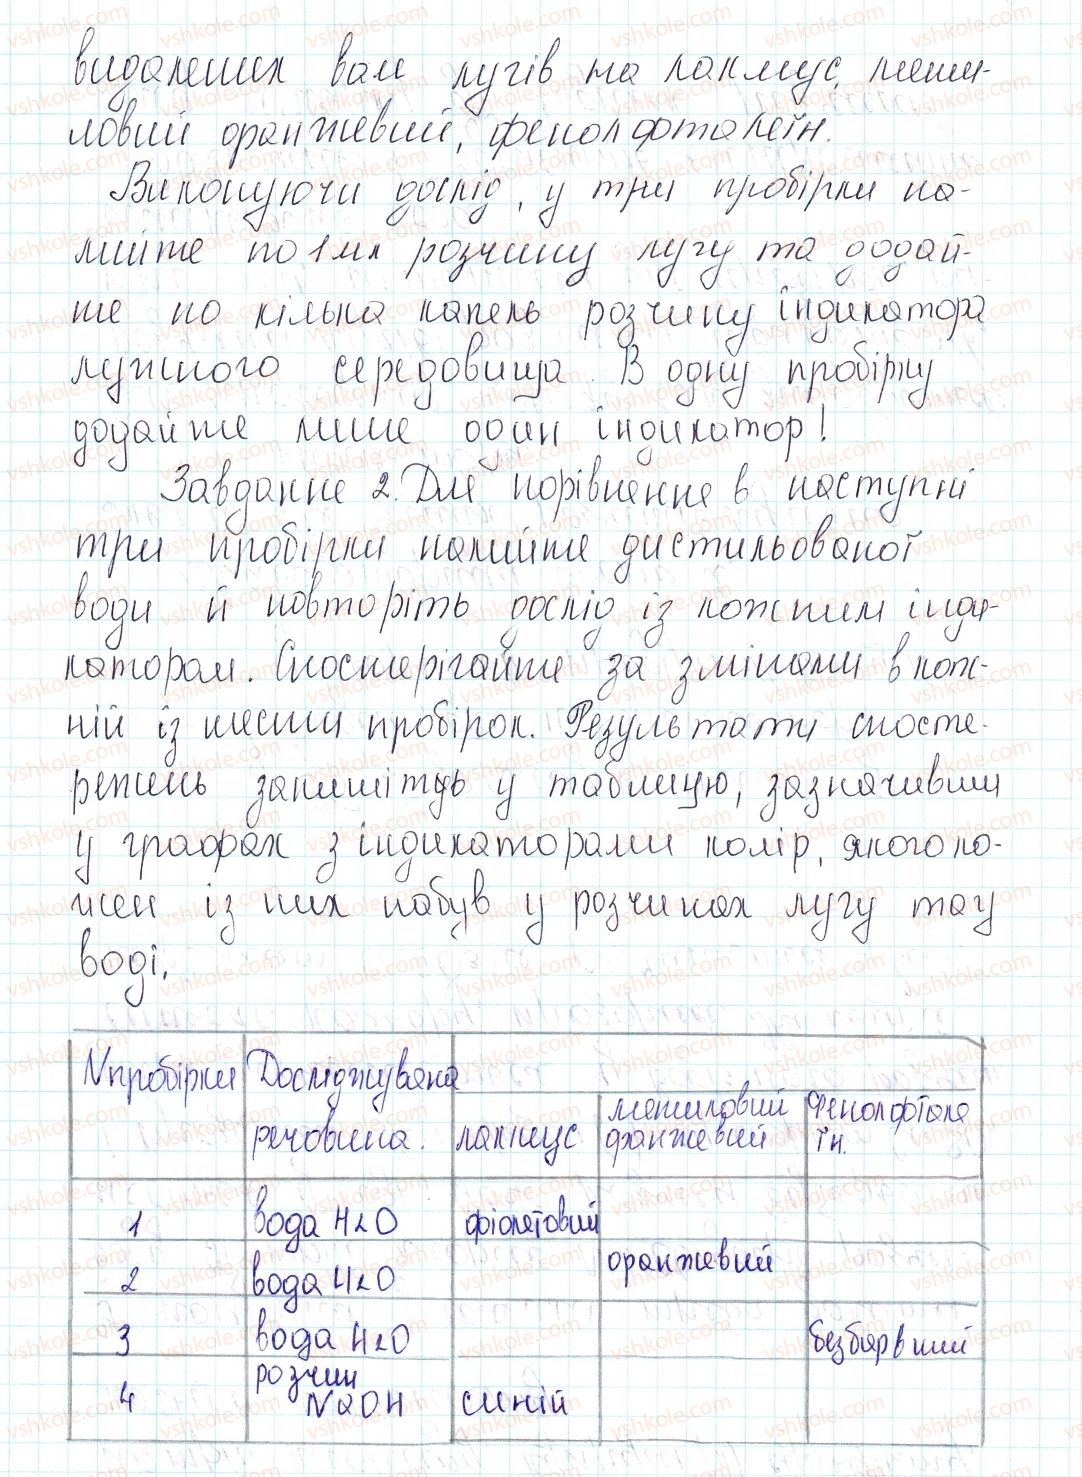 виданених вам лугів на лакмус, мети-
ловий оранжевий, фенолфталеїн.
Виконуючи дослід, у три пробірки на-
лийте по 1 мл розчину лугу та додай-
те по кілька капель розчину індикатора
лужного середовища. В одну пробірку
додайте лише один індикатор!
Завдання 2. Для порівняння в наступні
три пробірки налийте дистильованої
води й повторіть дослід із кожним інди-
катором. Спостерігайте за змінами в кож-
ній із шести пробірок. Результати спосте-
режень запишіть у таблицю, зазначивши
у графах з індикаторами колір, якого ко-
жен із них набув у розчинах лугу та у
воді.
N пробірки Досліджувана
речовина. лакмус метиловий оранжевий Фенолфтале
їн.
1 вода H2O фіолетовий
2 вода H2O оранжевий
3 вода H2O безбарвний
4 розчин NaOH синій